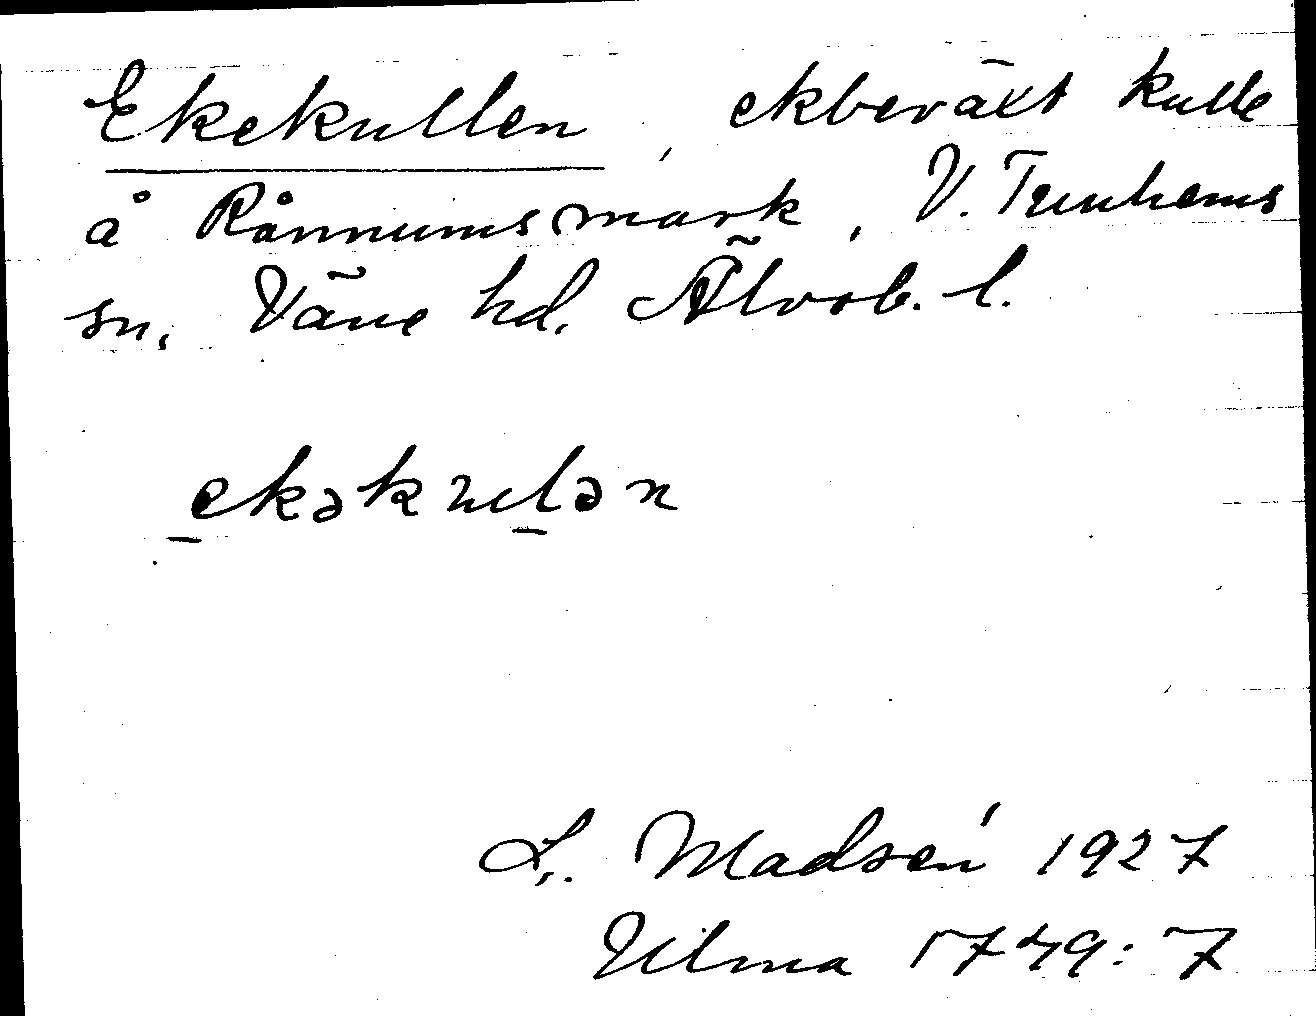 Ekekullen, ekbeväxt kulle
å Rånnums mark, V. Tunhems
sn. Väne hd. Älvsb. l.
ekəkulən
L. Madsén 1927
Ulma 1749:7